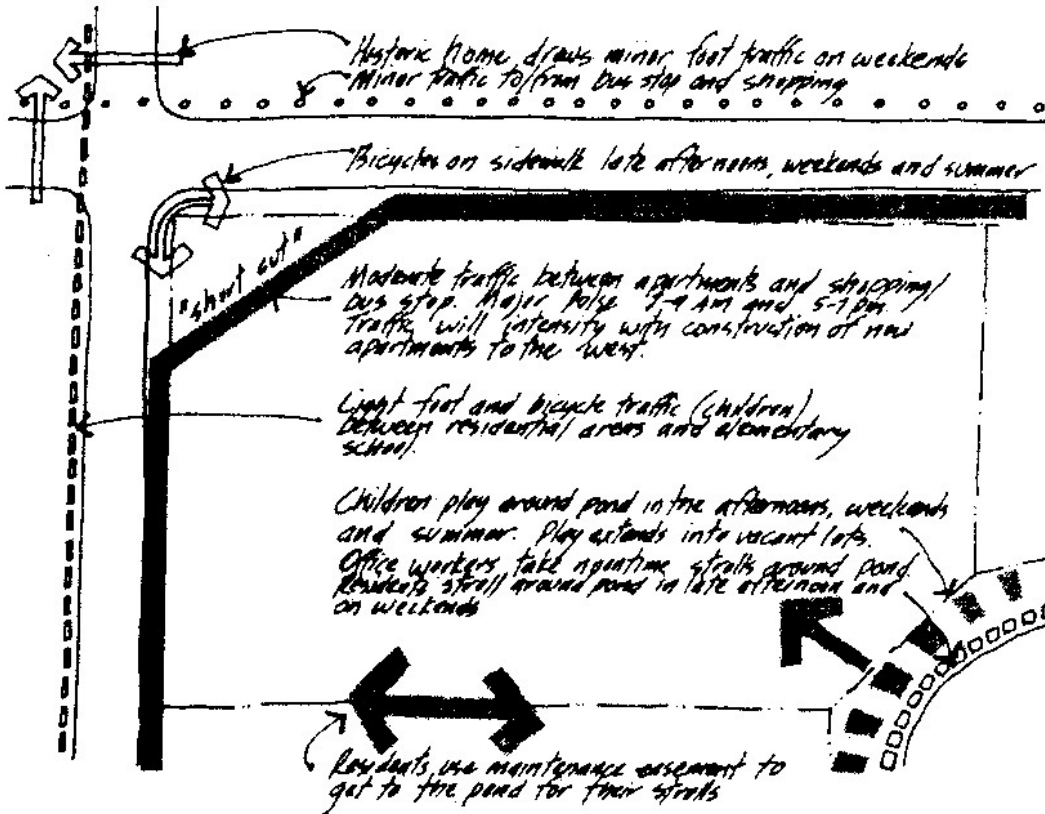 Historic home draws minor foot traffic on weekends
Minor traffic to/from bus stop and shopping
Bicycles on sidewalk late afternoons, weekends and summer
"short cut"
Moderate traffic between apartments and shopping/
bus stop. Major Pulse 7-9 AM and 5-7 pm.
Traffic will intensify with construction of new
apartments to the west.
Light foot and bicycle traffic (children)
between residential areas and elementary
school.
Children play around pond in the afternoons, weekends
and summer. Play extends into vacant lots.
Office workers take noontime strolls around pond.
Residents stroll around pond in late afternoon and
on weekends
Residents use maintenance easement to
get to the pond for their strolls